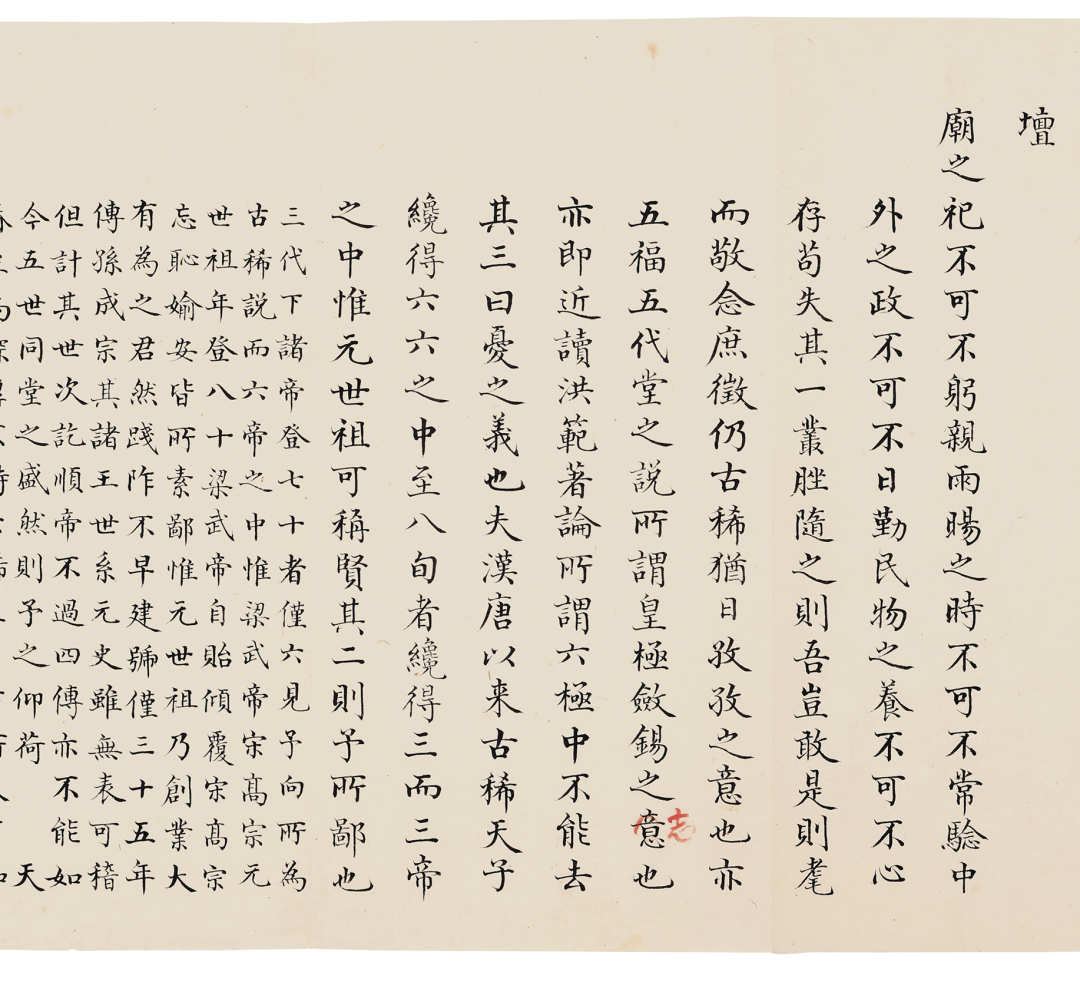 壇
廟之祀不可不躬親雨暘之時不可不常驗中
外之政不可不日勤民物之養不可不心
存苟失其一叢脞隨之則吾豈敢是則耄
而敬念庶徵仍古稀猶日孜孜之意也亦
五福五代堂之說所謂皇極斂錫之意也
志
亦即近讀洪範著論所謂六極中不能去
其三曰憂之義也夫漢唐以来古稀天子
纔得六六之中至八旬者纔得三而三帝
之中惟元世祖可稱賢其二則予所鄙也
三代下諸帝登七十者僅六見予向所為
古稀說而六帝之中惟梁武帝宋高宗元
世祖年登八十梁武帝自貽傾覆宋高宗
忘恥媮安皆所素鄙惟元世祖乃創業大
有為之君然踐阼不早建號僅三十五年
傳孫成宗其諸王世系元史雖無表可稽
但計其世次訖順帝不過四傳亦不能如
今五世同堂之盛然則予之仰荷天